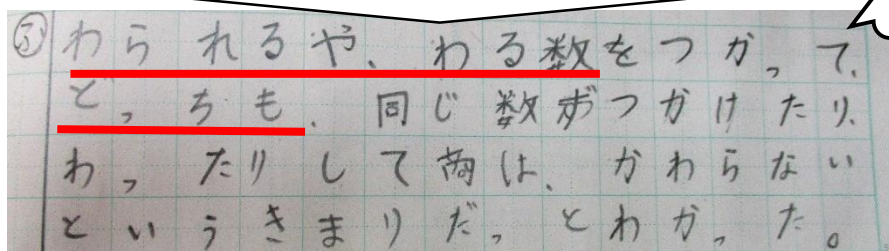 ふ わられるや、わる数をつかって、
どっちも、同じ数ずつかけたり、
わったりして商は、かわらない
というきまりだ、とわかった。